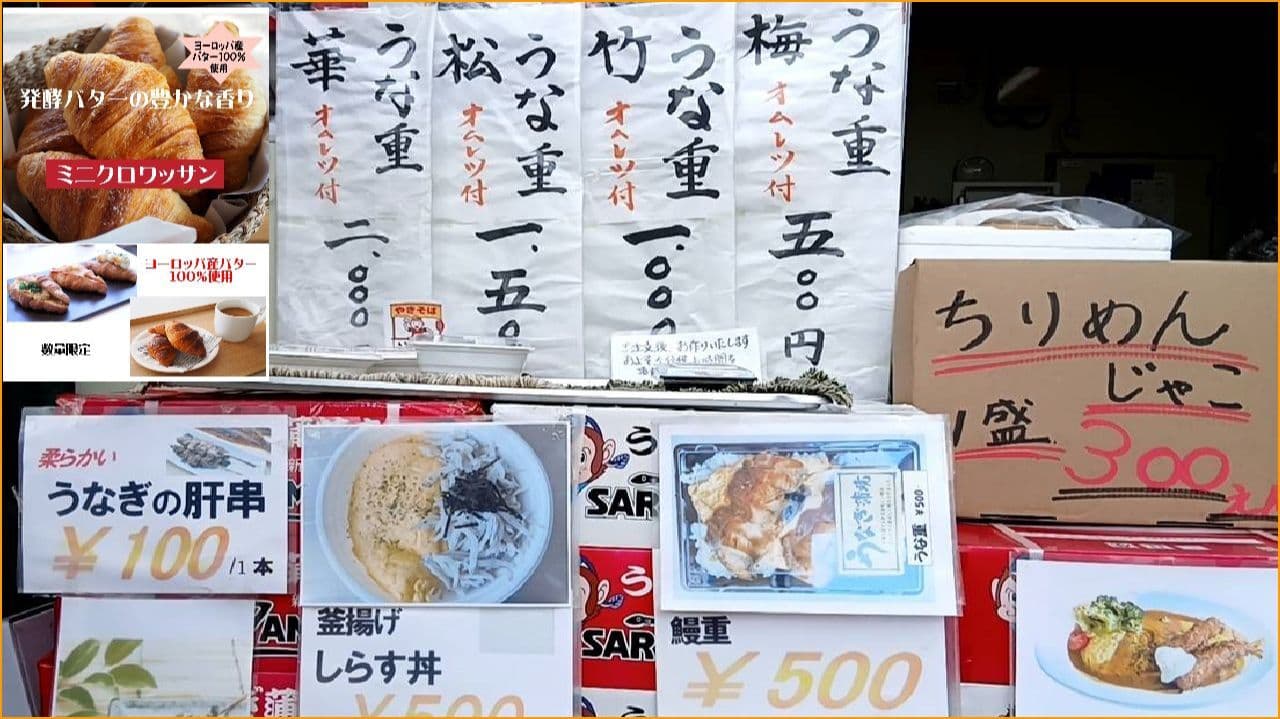 ヨーロッパ産
バター100%
使用
発酵バターの豊かな香り
ミニクロワッサン
ヨーロッパ産バター
100%使用
数量限定
うな重
梅
オムレツ付
五〇〇円
うな重
竹
オムレツ付
一、〇〇
うな重
松
オムレツ付
一、五〇
うな重
華
オムレツ付
二、〇〇〇
やきそば
お作りいたします
ちりめん
じゃこ
1盛
300えん
柔らかい
うなぎの肝串
¥100/1本
釜揚げ
しらす丼
¥500
うな重 ¥500
鰻重
¥500
う
SAR
う
SAR